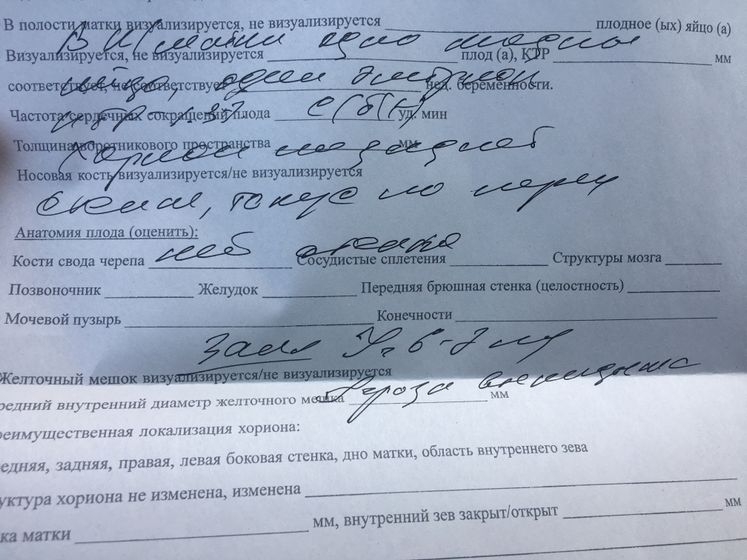 В полости матки визуализируется, не визуализируется плодное (ых) яйцо (а)
В п/матки одно плодное
Визуализируется, не визуализируется плод (а), КТР мм
яйцо, один эмбрион
соответствует, не соответствует нед. беременности.
КТР с/б(+)
Частота сердечных сокращений плода уд. мин
Толщина воротникового пространства мм
Хорион
Носовая кость визуализируется/не визуализируется
тонус по перед
Анатомия плода (оценить):
Кости свода черепа Сосудистые сплетения Структуры мозга
Позвоночник Желудок Передняя брюшная стенка (целостность)
Мочевой пузырь Конечности
Закл 6-7 нед
Желточный мешок визуализируется/не визуализируется
Угроза выкидыша
редний внутренний диаметр желточного мешка мм
реимущественная локализация хориона:
едняя, задняя, правая, левая боковая стенка, дно матки, область внутреннего зева
уктура хориона не изменена, изменена
ка матки мм, внутренний зев закрыт/открыт мм